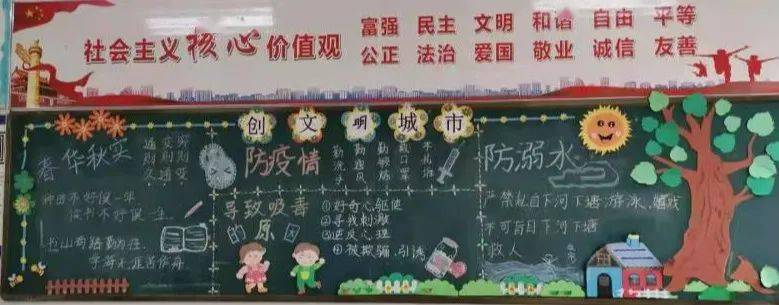 社会主义核心价值观
富强 民主 文明 和谐 自由 平等
公正 法治 爱国 敬业 诚信 友善
创文明城市
春华秋实
穷则变
变则通
通则久
种田不好误一年
读书不好误一生
书山有路勤为径
学海无涯苦作舟
防疫情
勤洗手
勤通风
戴口罩
导致吸毒
原
①好奇心驱使
②寻找刺激
③逆反心理
④被欺骗,引诱
防溺水
严禁私自下河下塘游泳、嬉戏
不可盲目下河下塘
救人